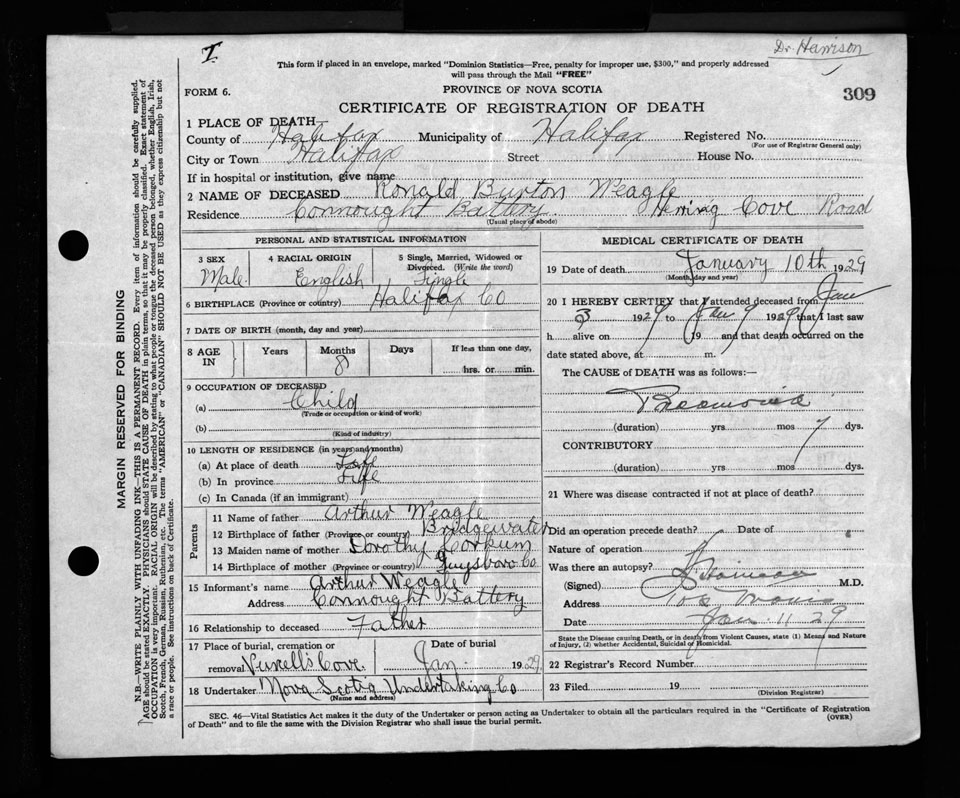 I
Dr. Harrison
This form if placed in an envelope, marked "Dominion Statistics—Free, penalty for improper use, $300," and properly addressed
will pass through the Mail "FREE"
FORM 6.
PROVINCE OF NOVA SCOTIA
309
CERTIFICATE OF REGISTRATION OF DEATH
1 PLACE OF DEATH—
County of Halifax Municipality of Halifax Registered No.
(For use of Registrar General only)
City or Town Halifax Street House No.
If in hospital or institution, give name
2 NAME OF DECEASED Ronald Burton Weagle
Residence Connought Battery. Herring Cove Road
(Usual place of abode)
PERSONAL AND STATISTICAL INFORMATION
3 SEX 4 RACIAL ORIGIN 5 Single, Married, Widowed or
Divorced. (Write the word)
Male. English Single
6 BIRTHPLACE (Province or country) Halifax Co
7 DATE OF BIRTH (month, day and year)
8 AGE IN Years Months Days If less than one day,
8 hrs. or min.
9 OCCUPATION OF DECEASED
(a) Child
(Trade or occupation or kind of work)
(b)
(Kind of industry)
10 LENGTH OF RESIDENCE (in years and months)
(a) At place of death Life
(b) In province Life
(c) In Canada (if an immigrant)
Parents
11 Name of father Arthur Weagle
12 Birthplace of father (Province or country) Bridgewater
13 Maiden name of mother Dorothy Corkum
14 Birthplace of mother (Province or country) Guysboro Co
15 Informant's name Arthur Weagle
Address Connought Battery
16 Relationship to deceased Father
17 Place of burial, cremation or Date of burial
removal Cove. Jan. 1929
18 Undertaker Nova Scotia Undertaking Co
(Name and address)
MEDICAL CERTIFICATE OF DEATH
19 Date of death January 10th 1929
(Month, day and year)
20 I HEREBY CERTIFY that I attended deceased from Jan
3 1929 to Jan 9 1929 that I last saw
h alive on 19 and that death occurred on the
date stated above, at m.
The CAUSE of DEATH was as follows:—
Pneumonia
(duration) yrs mos 7 dys.
CONTRIBUTORY
(duration) yrs. mos. dys.
21 Where was disease contracted if not at place of death?
Did an operation precede death? Date of
Nature of operation
Was there an autopsy?
(Signed) Harrison M.D.
Address
Date Jan. 11 29
State the Disease causing Death, or in death from Violent Causes, state (1) Means and Nature
of Injury, (2) whether Accidental, Suicidal or Homicidal.
22 Registrar's Record Number
23 Filed 19
(Division Registrar)
SEC. 46—Vital Statistics Act makes it the duty of the Undertaker or person acting as Undertaker to obtain all the particulars required in the "Certificate of Registration
of Death" and to file the same with the Division Registrar who shall issue the burial permit.
(OVER)
MARGIN RESERVED FOR BINDING
N.B.—WRITE PLAINLY WITH UNFADING INK—THIS IS A PERMANENT RECORD. Every item of information should be carefully supplied.
AGE should be stated EXACTLY. PHYSICIANS should STATE CAUSE OF DEATH in plain terms, so that it may be properly classified. Exact statement of
OCCUPATION is very important. RACIAL ORIGIN will be described by stating to what people or tongue the deceased person belonged, whether English, Irish,
Scotch, French, German, Russian, Ruthenian, etc. The terms "AMERICAN" or "CANADIAN" SHOULD NOT BE USED as they express citizenship but not
a race or people. See instructions on back of Certificate.